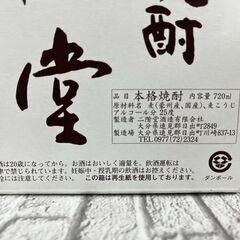 焼酎
堂
品目 本格焼酎 内容量 720㎖
原材料名 麦(豪州産、国産)、麦こうじ
アルコール分 25度
製造者 二階堂酒造有限会社
大分県速見郡日出町2849
製造場 大分県速見郡日出町川崎837-13
TEL(0977)72-2324
酒は20歳になってから。お酒はおいしく適量を。飲酒運転は
律で禁じられています。妊娠中・授乳期の飲酒はお控え下さい。
この箱は再生紙を使用しております。
ダンボール